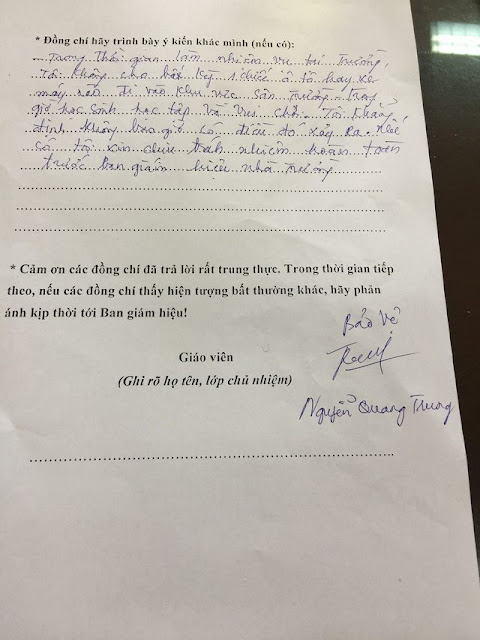 * Đồng chí hãy trình bày ý kiến khác mình (nếu có):
Trong thời gian làm nhiệm vụ tại trường,
Tôi không cho bất kỳ 1 chiếc ô tô hay xe
máy nào đi vào khu vực sân trường. Trong
giờ học sinh học tập và vui chơi. Tôi khẳng
định không bao giờ có điều đó xảy ra. Nếu
có tôi xin chịu trách nhiệm hoàn toàn
trước ban giám hiệu nhà trường
* Cảm ơn các đồng chí đã trả lời rất trung thực. Trong thời gian tiếp
theo, nếu các đồng chí thấy hiện tượng bất thường khác, hãy phản
ánh kịp thời tới Ban giám hiệu!
Bảo vệ
Giáo viên
(Ghi rõ họ tên, lớp chủ nhiệm)
Nguyễn Quang Trung